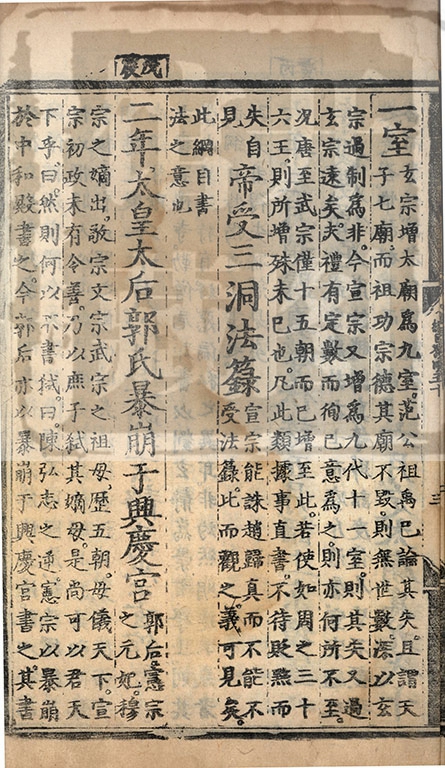 一室
玄宗增太廟爲九室。范公祖禹已論其失。且謂天
子七廟。而祖功宗德其廟不毀。則無世數。深以玄
宗過制爲非。今宣宗又增爲九代十一室。則其失又過
玄宗遠矣。夫禮有定數。而徇已意爲之。則亦何所不至。
况唐至武宗僅十五朝而已增至此。若使如周之三十
六王。則所增殊未已也。凡此類據事直書。不待貶黜而
失自
見
帝受三洞法籙
宣宗能誅趙歸真而不能不
受法籙此而觀之。義可見矣。
此綱目書
法之意也
戊辰
二年太皇太后郭氏暴崩于興慶宮
郭后。憲宗
之元妃。穆
宗之嫡出。敬宗文宗武宗之祖母。歷五朝。母儀天下。宣
宗初政未有令善。乃以庶子弒其嫡母。是尚可以君天
下乎。曰。然則何以不書弒。曰。陳弘志之逆。憲宗以暴崩
於中和殿書之。今郭后亦以暴崩于興慶宮書之。其書